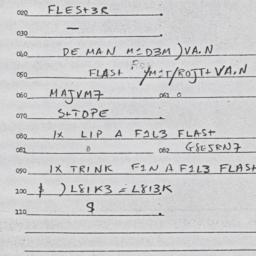 020 FLEST3R
030 —
040 DE MAN M=D3M ) VA.N
050 FLASH /M=T/ROJT+ VA.N
060 MAJVM7 061 0
070 S+TOPE
080 IX LIP A F1L3 FLASH
081 0 082 G8ESRN7
090 IX TRINK F1N A F1L3 FLASH
100 $ ) L81K3 = L813K
110 $